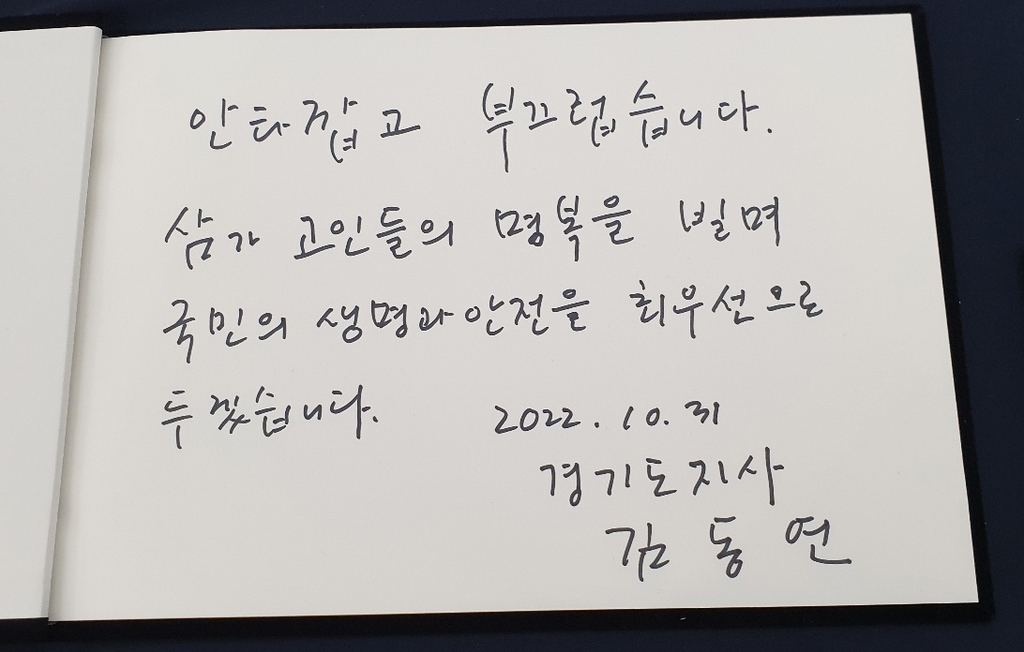 안타깝고 부끄럽습니다.
삼가 고인들의 명복을 빌며
국민의 생명과 안전을 최우선으로
두겠습니다. 2022. 10. 31
경기도지사
김 동 연